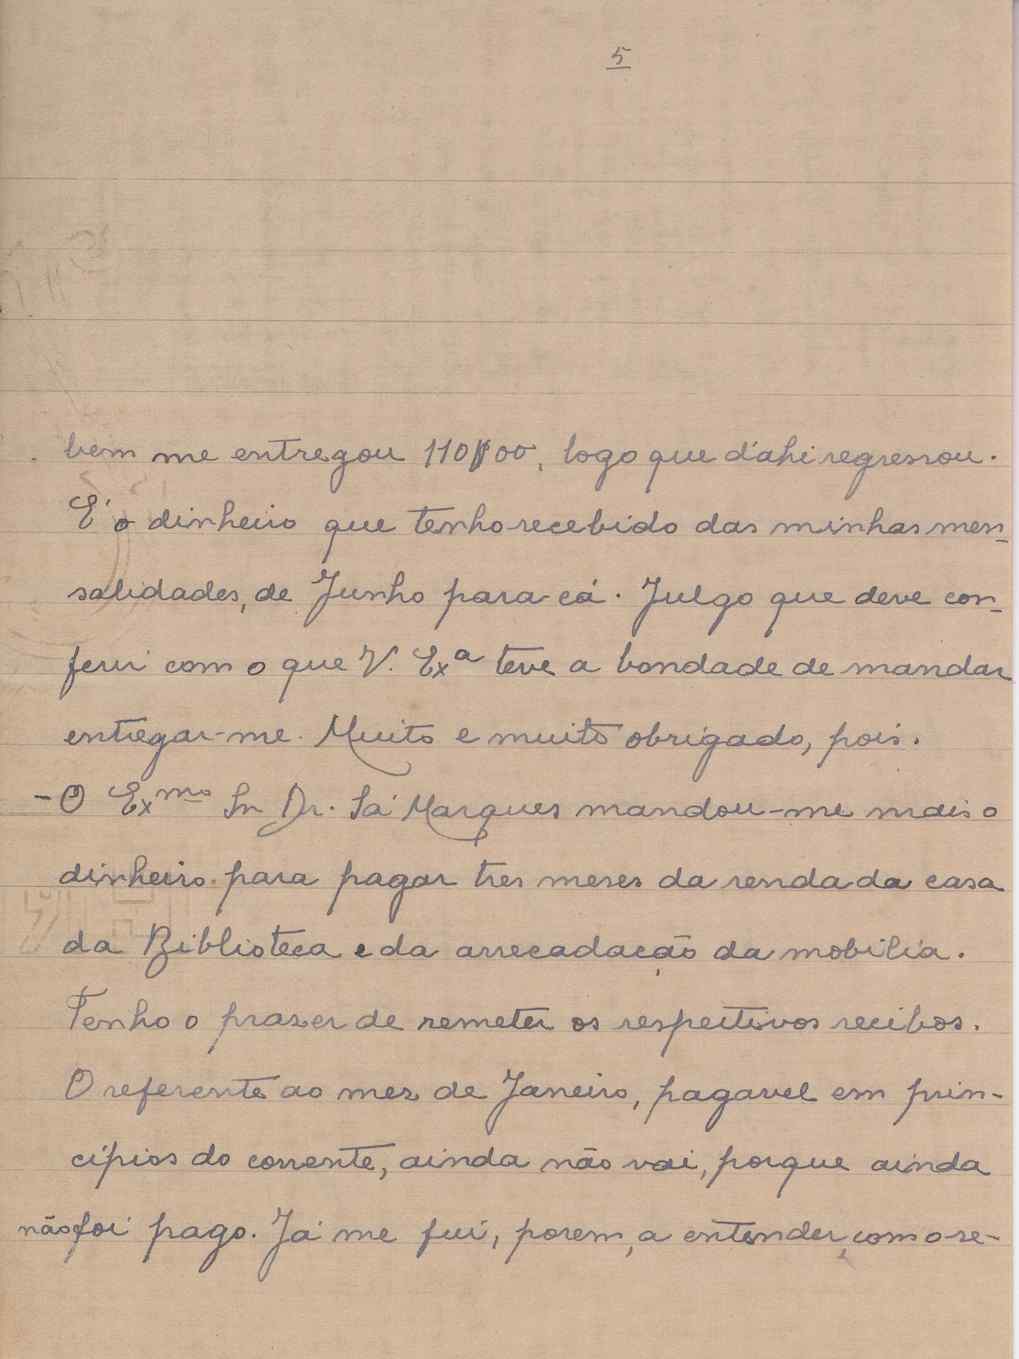 5
bem me entregou 110$00, logo que d'ahi regressou.
E' o dinheiro que tenho recebido das minhas men-
salidades, de Junho para cá. Julgo que deve con-
ferir com o que V. Exª teve a bondade de mandar
entregar-me. Muito e muito obrigado, pois.
- O Exmo Snr Dr. Sá Marques mandou-me mais o
dinheiro para pagar tres meses da renda da casa
da Biblioteca e da arrecadação da mobilia.
Tenho o praser de remeter os respectivos recibos.
O referente ao mez de Janeiro, pagavel em prin-
cípios do corrente, ainda não vai, porque ainda
não foi pago. Já me fui, porem, a entender, com o se-